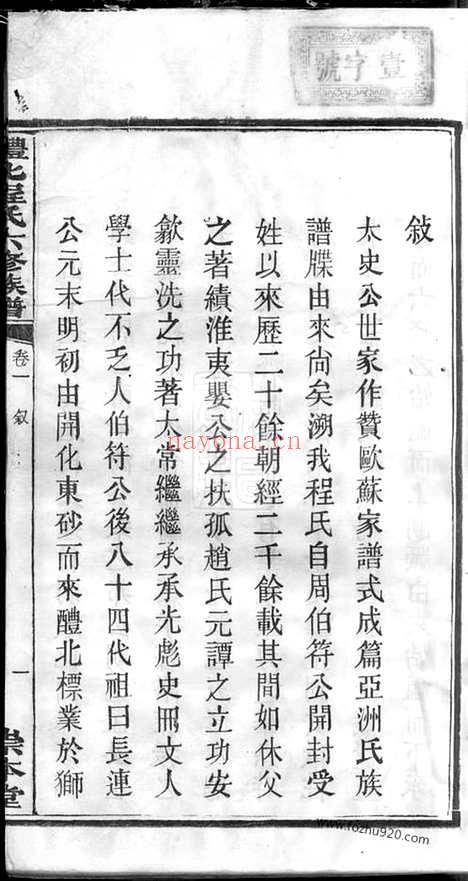 壹字號
敍
太史公世家作贊歐蘇家譜式成篇亞洲氏族
譜牒由來尚矣溯我程氏自周伯符公開封受
姓以來歷二十餘朝經二千餘載其間如休父
之著績淮夷嬰公之扶孤趙氏元譚之立功安
歙靈洗之功著太常繼繼承承光彪史冊文人
學士代不乏人伯符公後八十四代祖曰長連
公元末明初由開化東砂而來醴北標業於獅
醴北程氏六修族譜
卷一 敍
一
崇本堂
nayona.cn
www.fozhu920.com